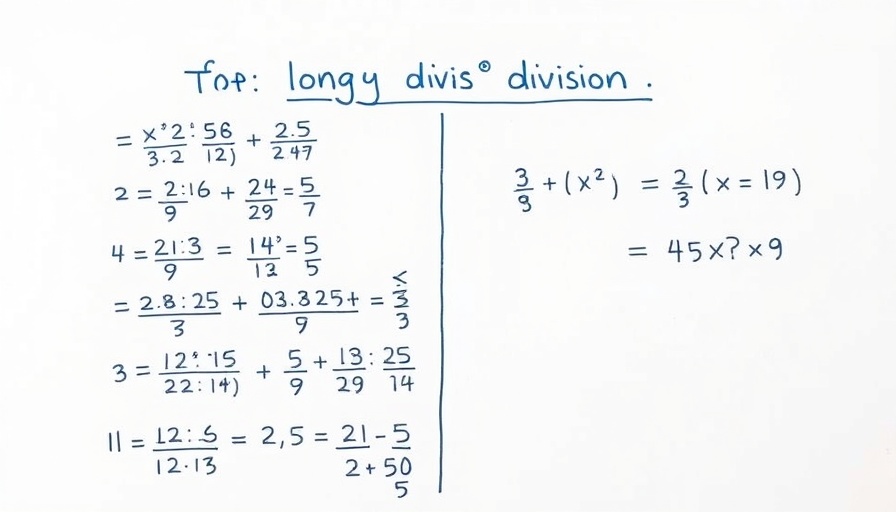 Top: longy divis° division.
= x'2:56/3.2 12) + 2.5/247
2 = 2:16/9 + 24/29 = 5/7
4 = 21:3/9 = 14'/12 = 5/5
= 2.8:25/3 + 03.325+/9 = 3/3
3 = 12:15/22:14) + 5/9 + 13/29 : 25/14
11 = 12:6/12·13 = 2,5 = 21-5/2+50
5
3/9 + (x²) = 2/3 (x = 19)
= 45x?x9